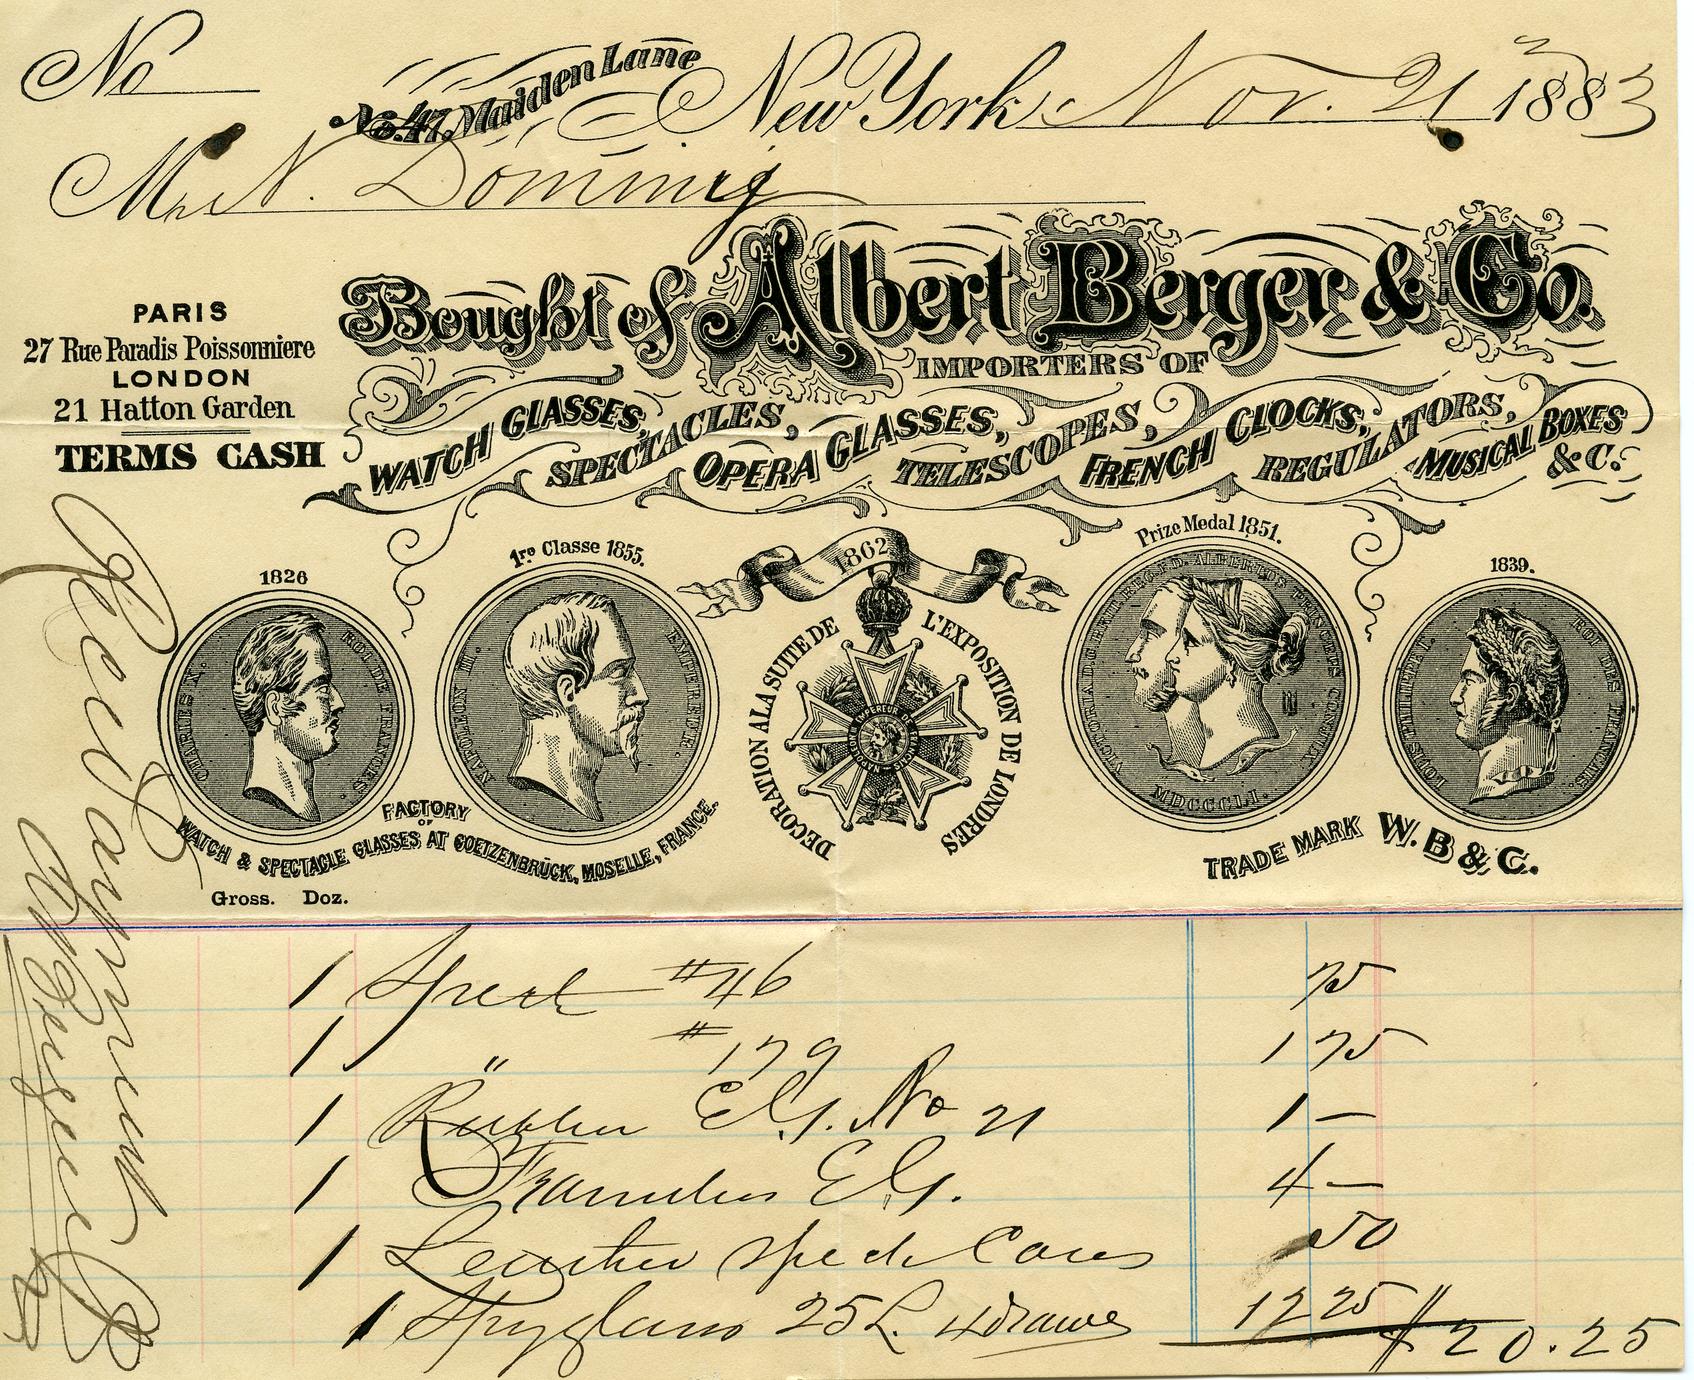 No
No. 47, Maiden Lane New York, Nov. 21 1883
Mr N. Dominig
Bought of Albert Berger & Co.
IMPORTERS OF
WATCH GLASSES, SPECTACLES, OPERA GLASSES, TELESCOPES, FRENCH CLOCKS, REGULATORS, MUSICAL BOXES &C.
PARIS
27 Rue Paradis Poissonniere
LONDON
21 Hatton Garden
TERMS CASH
1826
CHARLES X. ROI DE FRANCE.
1re Classe 1855.
NAPOLEON III. EMPEREUR.
1862
DECORATION A LA SUITE DE L'EXPOSITION DE LONDRES
Prize Medal 1851.
VICTORIA D:G: BRIT: REG: F:D: ALBERTUS PRINCEPS CONJUX
MDCCCLI.
1839.
LOUIS PHILIPPE I. ROI DES FRANÇAIS.
FACTORY
OF
WATCH & SPECTACLE GLASSES AT GOETZENBRÜCK, MOSELLE, FRANCE.
TRADE MARK W. B & C.
Gross. Doz.
1 Spect #46 75
1 " #179 1 75
1 Rubber E.G. No 21 1 —
1 Frameless E.G. 4 —
1 Leather Spect Cases 50
1 Spyglass 25 L. 4 Draws 12 25 $20.25
Rec'd Payment